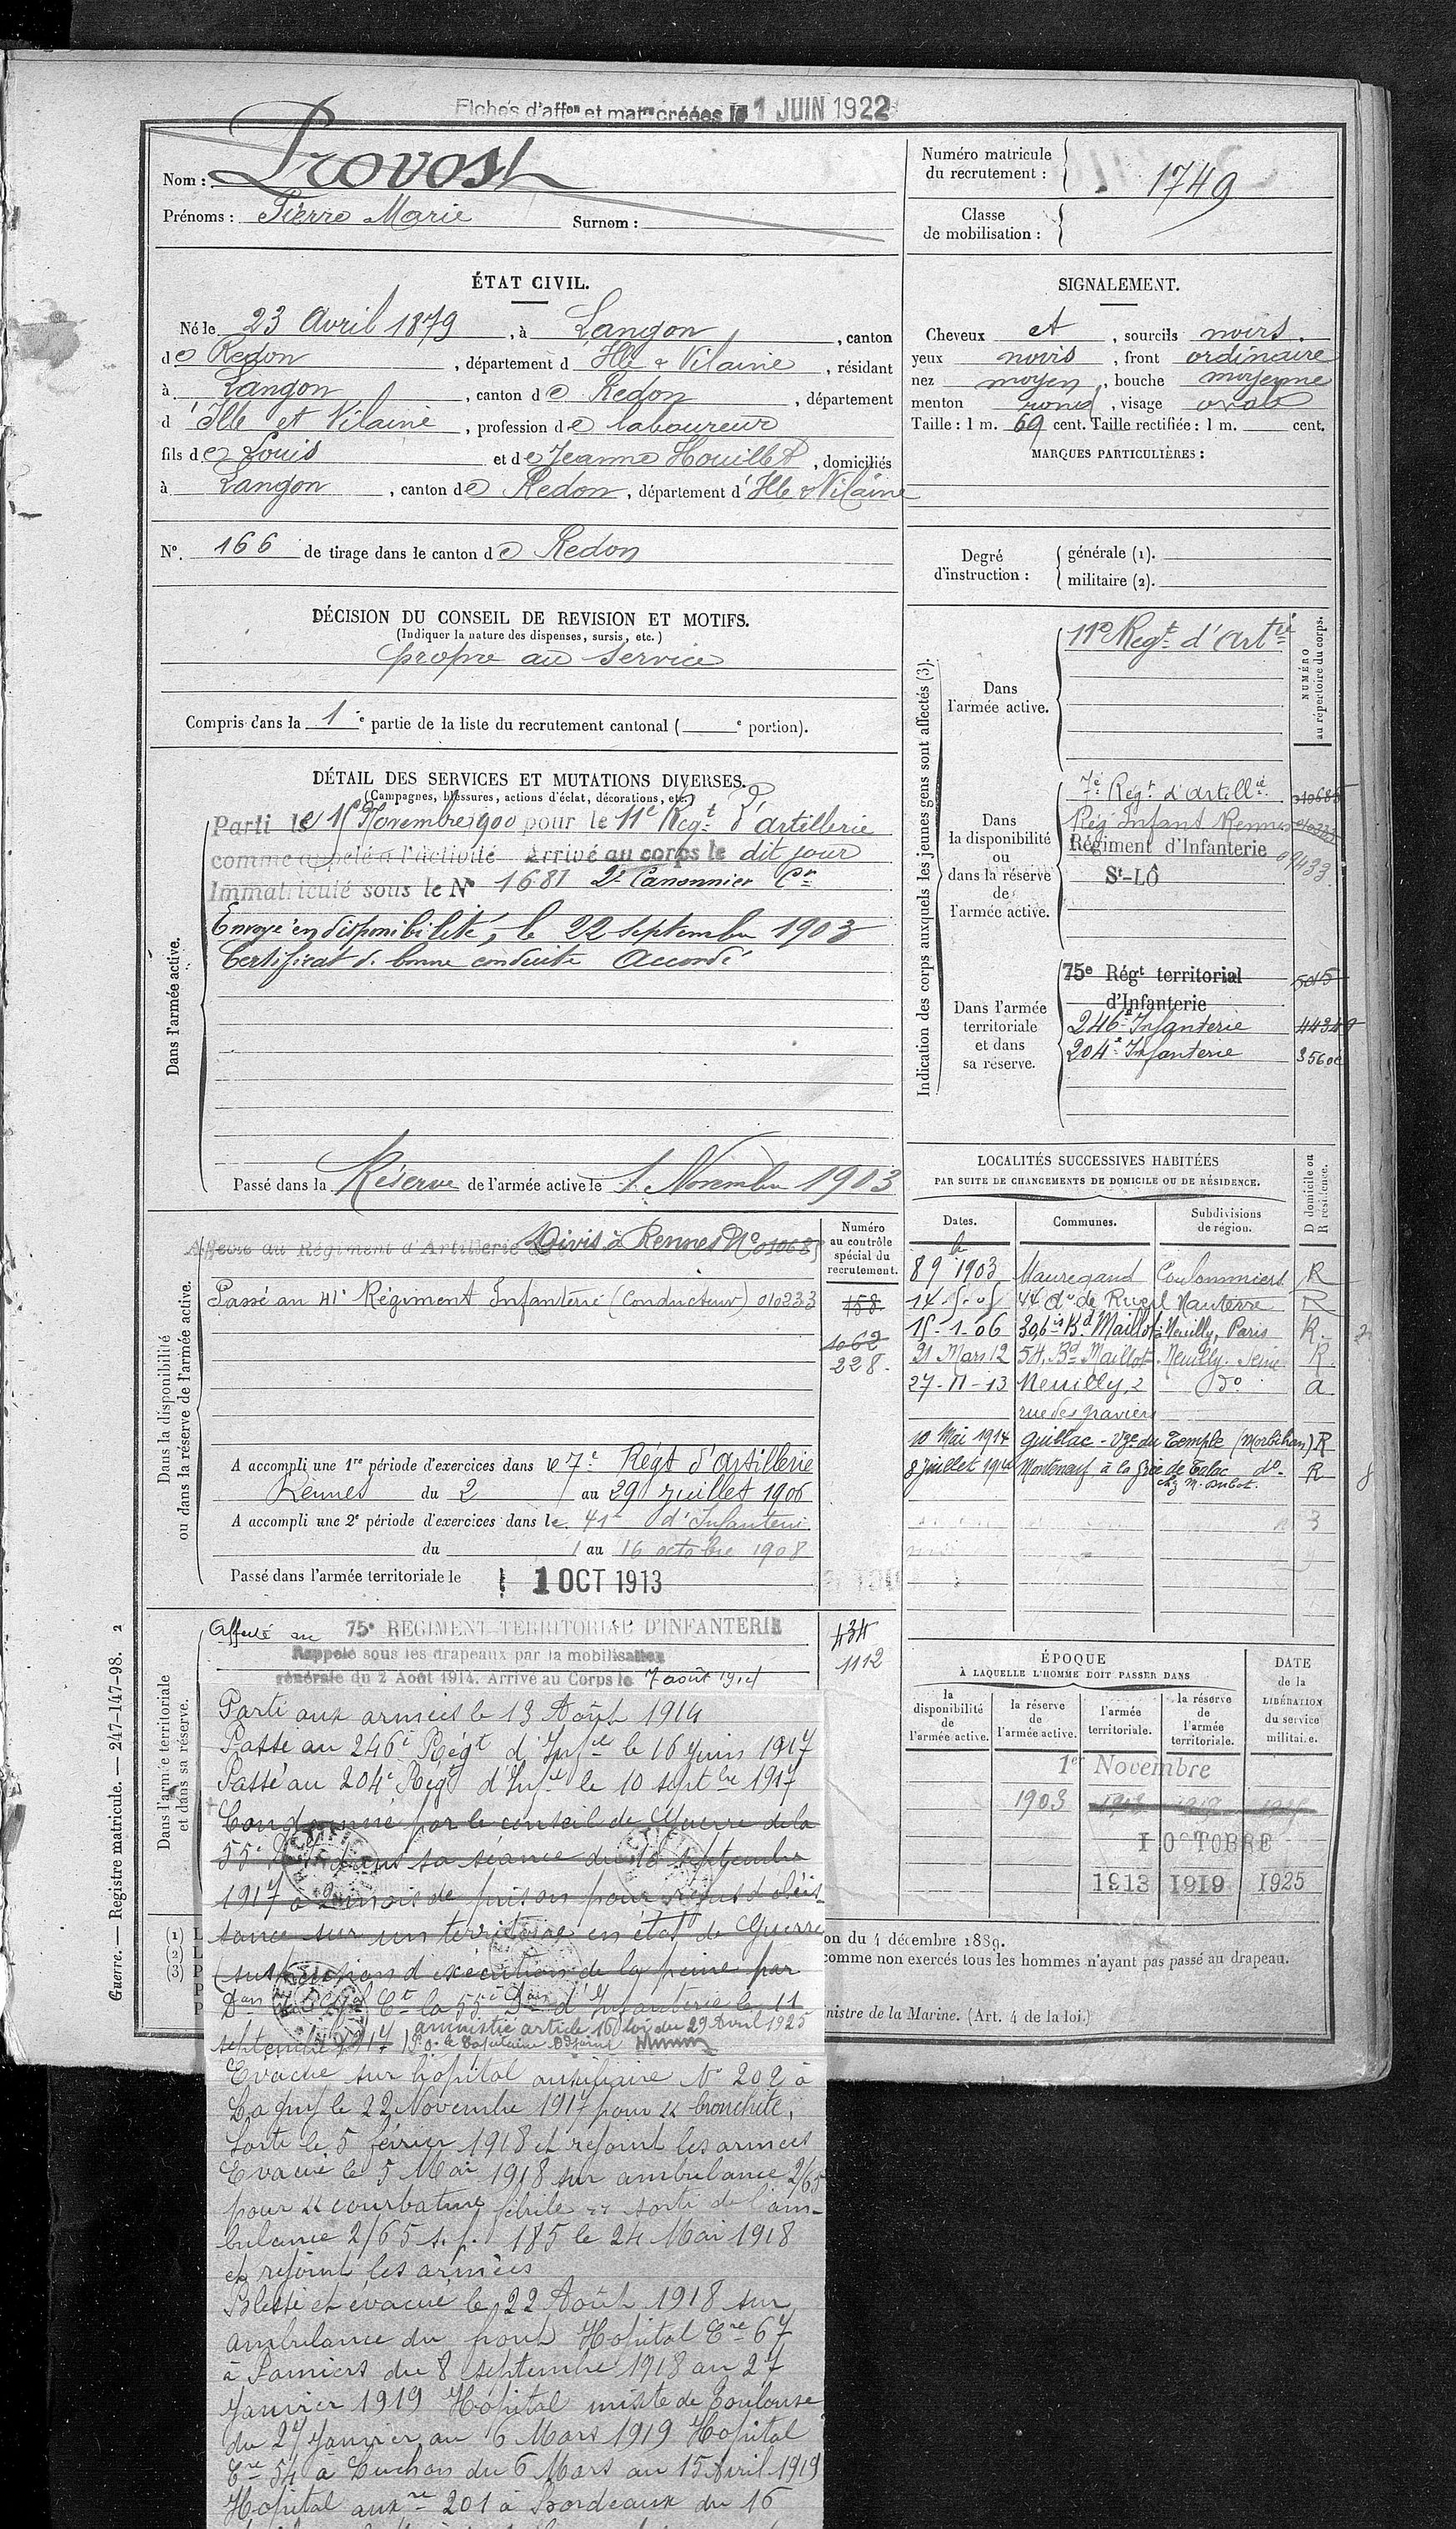 Fiches d'affon et matre créées le 1 JUIN 1922
Nom : Provost
Prénoms : Pierre Marie Surnom :
Numéro matricule du recrutement : 1749
Classe de mobilisation :
ÉTAT CIVIL.
Né le 23 Avril 1879, à Langon, canton
de Redon, département d Ille & Vilaine, résidant
à Langon, canton de Redon, département
d'Ille et Vilaine, profession de laboureur
fils de Louis et de Jeanne Houillot, domiciliés
à Langon, canton de Redon, département d'Ille & Vilaine
N° 166 de tirage dans le canton de Redon
SIGNALEMENT.
Cheveux et, sourcils noirs.
yeux noirs, front ordinaire
nez moyen, bouche moyenne
menton rond, visage ovale
Taille : 1 m. 69 cent. Taille rectifiée : 1 m. cent.
MARQUES PARTICULIÈRES :
Degré d'instruction : générale (1).
militaire (2).
DÉCISION DU CONSEIL DE REVISION ET MOTIFS.
(Indiquer la nature des dispenses, sursis, etc.)
propre au service
Compris dans la 1e partie de la liste du recrutement cantonal ( e portion).
DÉTAIL DES SERVICES ET MUTATIONS DIVERSES.
(Campagnes, blessures, actions d'éclat, décorations, etc.)
Dans l'armée active.
Parti le 15 Novembre 1900 pour le 11e Regt d'artillerie
comme appelé à l'activité Arrivé au corps le dit jour
Immatriculé sous le N° 1681 2e Canonnier Cr
Envoyé en disponibilité, le 22 septembre 1903
Certificat de bonne conduite Accordé
Passé dans la Réserve de l'armée active le 1 Novembre 1903
Indication des corps auxquels les jeunes gens sont affectés (3).
NUMÉRO au répertoire du corps.
Dans l'armée active.
11e Regt d'Artie
Dans la disponibilité ou dans la réserve de l'armée active.
7e Regt d'artillie 010685
Rég Infant Rennes 010233
Régiment d'Infanterie 09433
St-LÔ
Dans l'armée territoriale et dans sa réserve.
75e Régt territorial d'Infanterie 5015
246e Infanterie
204e Infanterie
LOCALITÉS SUCCESSIVES HABITÉES
PAR SUITE DE CHANGEMENTS DE DOMICILE OU DE RÉSIDENCE.
Dates. Communes. Subdivisions de région. D domicile ou R résidence.
8 9 1903 Mauregard Coulommiers R
14-5-05 44 Au de Rueil Nanterre R
15-1-06 30, bis Bd Maillot Neuilly, Paris R.
21 Mars 12 54, Bd Maillot Neuilly Seine R
27-11-13 Neuilly, 2 do a
rue des graviers
10 Mai 1914 Guillac - Vge du Temple (Morbihan) R
8 juillet 1914 Monteneuf à la grée de Talac do R
Dans la disponibilité ou dans la réserve de l'armée active.
Numéro au contrôle spécial du recrutement.
Affecté au Régiment d'Artillerie Divis à Rennes N° 010685
Passé au 41e Régiment Infanterie (Conducteur) 010233
158
1062
228.
A accompli une 1re période d'exercices dans le 7e Régt d'artillerie
Rennes du 2 au 29 juillet 1906
A accompli une 2e période d'exercices dans le 41e d'Infanterie
du 1 au 16 octobre 1908
Passé dans l'armée territoriale le 1 OCT 1913
Dans l'armée territoriale et dans sa réserve.
Affecté au 75e RÉGIMENT TERRITORIAL D'INFANTERIE 434
Rappelé sous les drapeaux par la mobilisation 1112
générale du 2 Août 1914. Arrivé au Corps le 7 août 1914
Parti aux armées le 13 Août 1914
Passé au 246e Régt d'Infie le 16 juin 1917
Passé au 204e Régt d'Infie le 10 septbre 1917
Condamné par le conseil de Guerre de la
55e Don dans sa séance du 10 septembre
1917 à 2 mois de prison pour refus d'obéis
sance sur un territoire en état de Guerre
(suspension d'exécution de la peine par
le Gal Ct la 55e Don d'Infanterie le 11
septembre 1917) amnistié article 16 loi du 29 Avril 1925
Evacué sur hôpital auxiliaire N° 202 à
Lagny le 22 Novembre 1917 pour « bronchite,
Sorti le 5 février 1918 et rejoint les armées
Evacué le 5 Mai 1918 sur ambulance 2/65
pour « courbature fébrile » sorti de l'am-
bulance 2/65 s.p. 185 le 24 Mai 1918
et rejoint les armées
Blessé et évacué le 22 Août 1918 sur
ambulance du front Hopital Cre 67
à Pamiers du 8 septembre 1918 au 27
Janvier 1919 Hôpital mixte de Toulouse
du 27 Janvier au 6 Mars 1919 Hopital
Cre 54 à Luchon du 6 Mars au 15 Avril 1919
Hopital auxre 201 à Bordeaux du 16
ÉPOQUE
À LAQUELLE L'HOMME DOIT PASSER DANS
DATE de la LIBÉRATION du service militaire.
la disponibilité de l'armée active. la réserve de l'armée active. l'armée territoriale. la réserve de l'armée territoriale.
1er Novembre
1903
1 OCTOBRE
1913 1919 1925
on du 4 décembre 1889.
comme non exercés tous les hommes n'ayant pas passé au drapeau.
nistre de la Marine. (Art. 4 de la loi.)
Guerre. — Registre matricule. — 247-147-98. 2